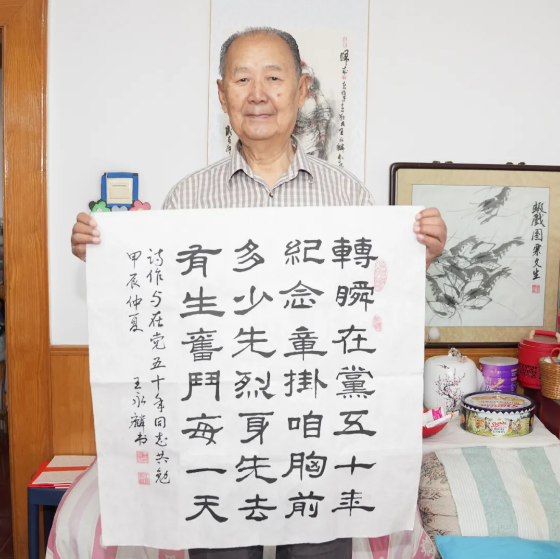 轉瞬在黨五十年
紀念章掛咱胸前
多少先烈身先去
有生奮鬥每一天
诗作与在党五十年同志共勉
甲辰仲夏
王永麟书
蝦戲图